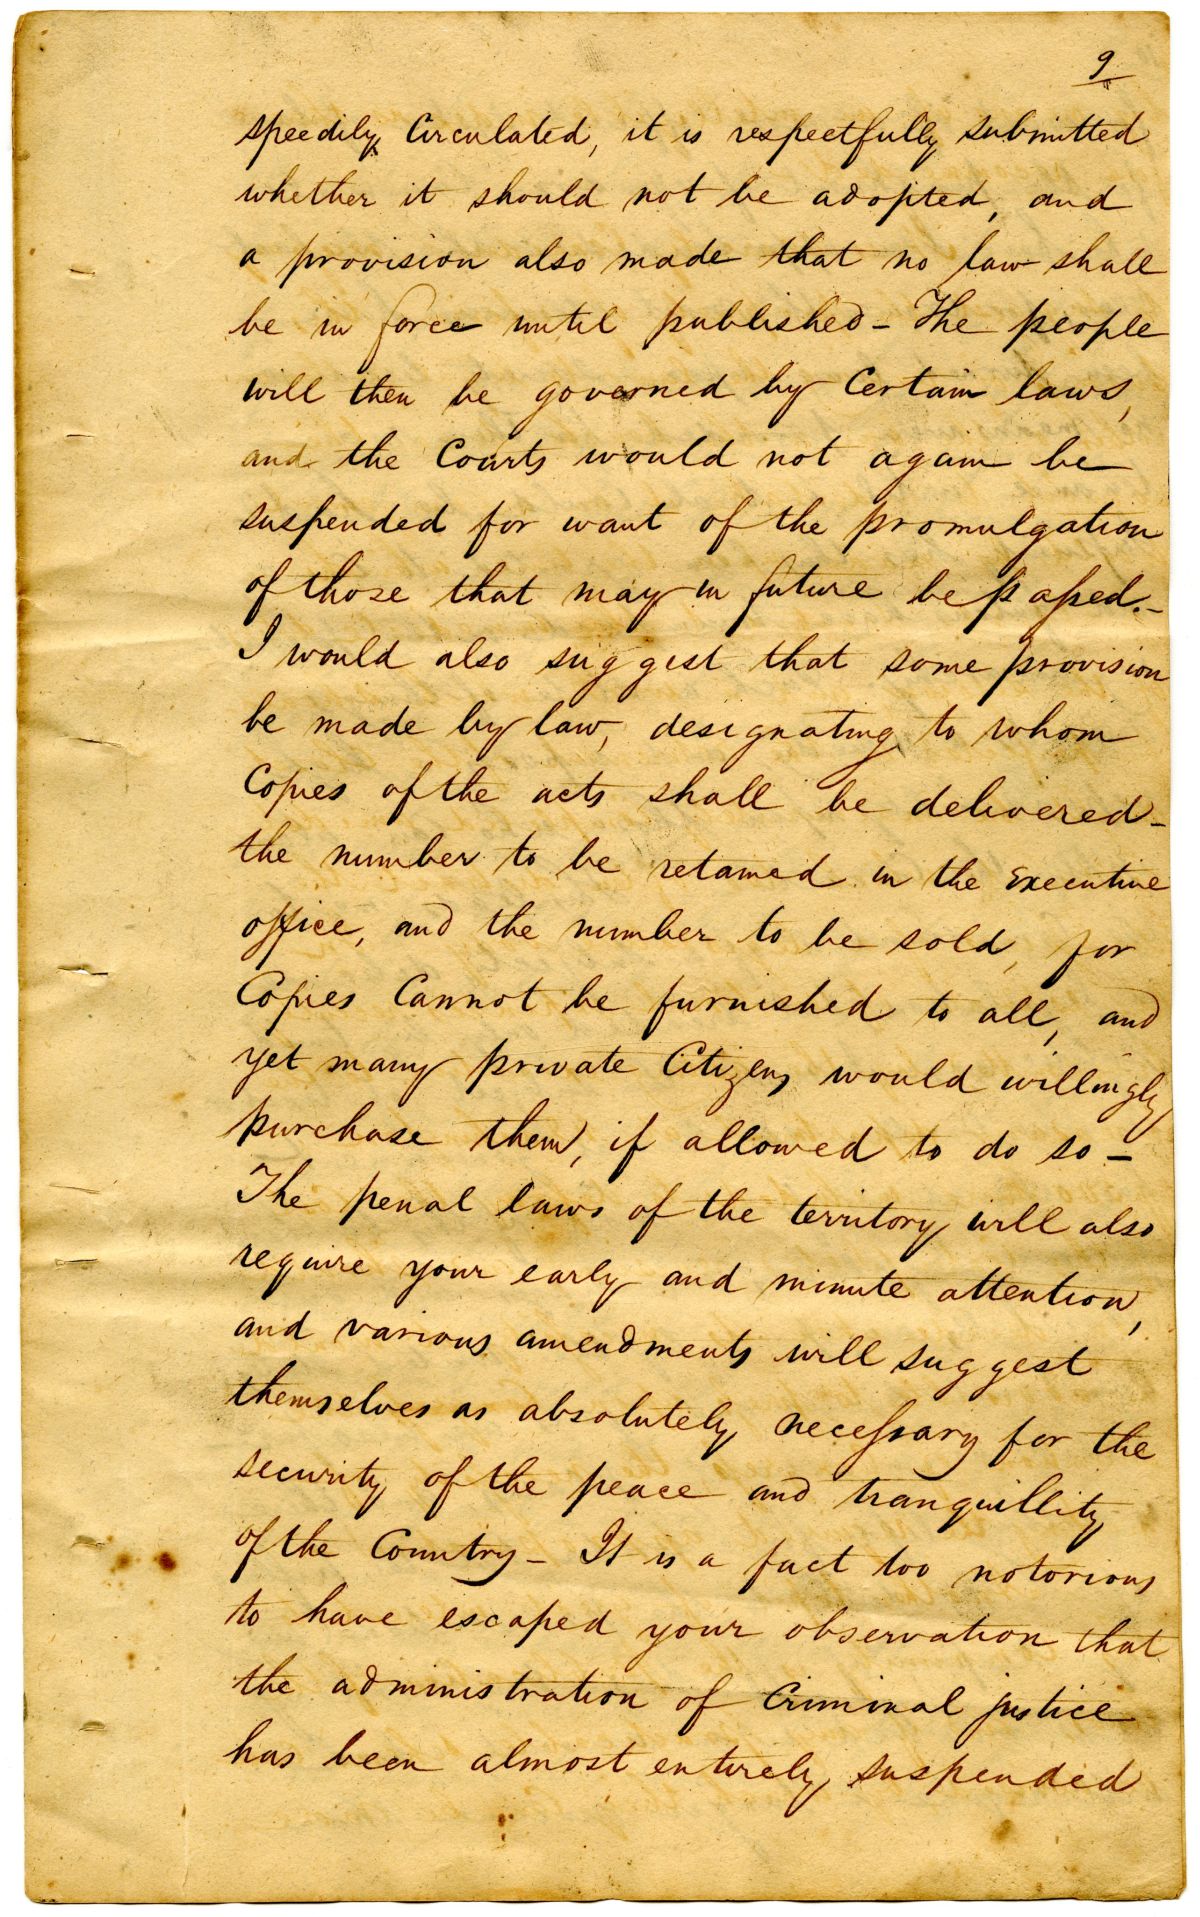 9
speedily Circulated, it is respectfully submitted
whether it should not be adopted, and
a provision also made that no law shall
be in force until published - The people
will then be governed by Certain laws,
and the Courts would not again be
suspended for want of the promulgation
of those that may in future be passed. -
I would also suggest that some provision
be made by law, designating to whom
Copies of the acts shall be delivered -
the number to be retained in the executive
office, and the number to be sold, for
Copies Cannot be furnished to all, and
yet many private Citizens would willingly
purchase them, if allowed to do so -
The penal laws of the territory will also
require your early and minute attention,
and various amendments will suggest
themselves as absolutely necessary for the
security of the peace and tranquillity
of the Country - It is a fact too notorious
to have escaped your observation that
the administration of Criminal justice
has been almost entirely suspended